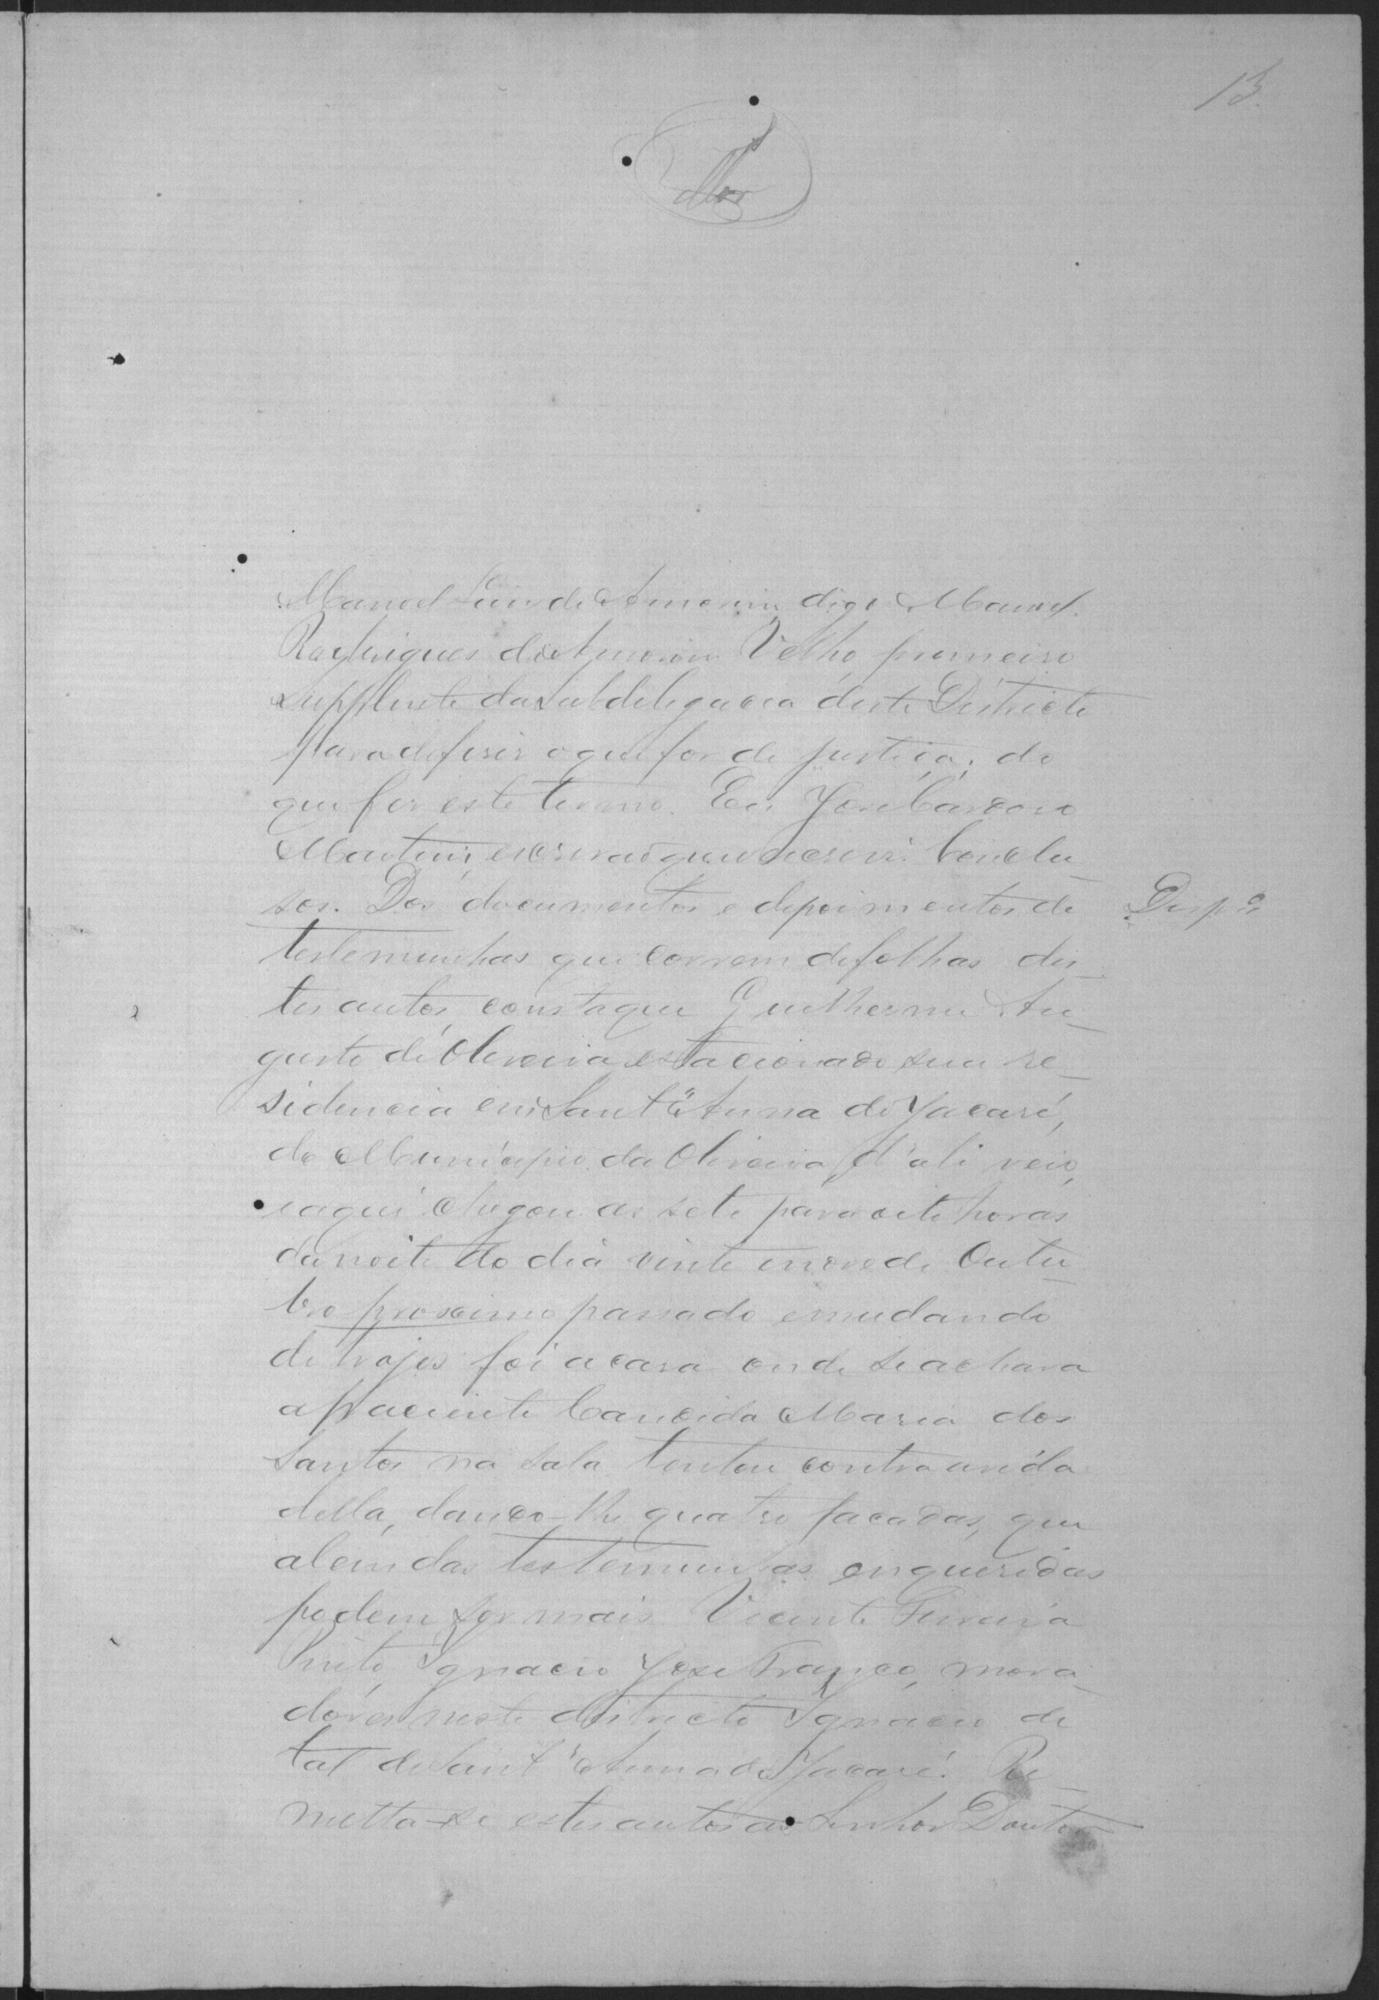 13
Manoel Luis de Amorim, digo Manoel
Rodrigues de Amorim Velho primeiro
Supplente da subdelegacia deste Districto
para deferir o que for de justiça; do
que fiz este termo. Eu José Cardoso
Martins, escrivão que escrevi. Conclu-
sos. Dos documentos e depoimentos de
Desp.º
testemunhas que correm de folhas des-
tes autos, consta que Guilherme Au-
gusto de Oliveira estacionado sua re-
sidencia em Sant'Anna do Jacaré,
do Municipio da Oliveira, d'ali veio,
e aqui chegou as sete para oito horas
da noite do dia vinte e nove de Outu-
bro proximo passado e mudando
de trajes foi a casa onde se achava
a paciente Candida Maria dos
Santos na sala tentou contra a vida
della, dando-lhe quatro facadas, que
alem das testemunhas enqueridas
podem ser mais Vicente Ferreira
Ignacio José Franco, mora-
dores neste districto Ignacio de
tal de Sant'Anna do Jacaré. Re-
metta-se estes autos ao Senhor Doutor